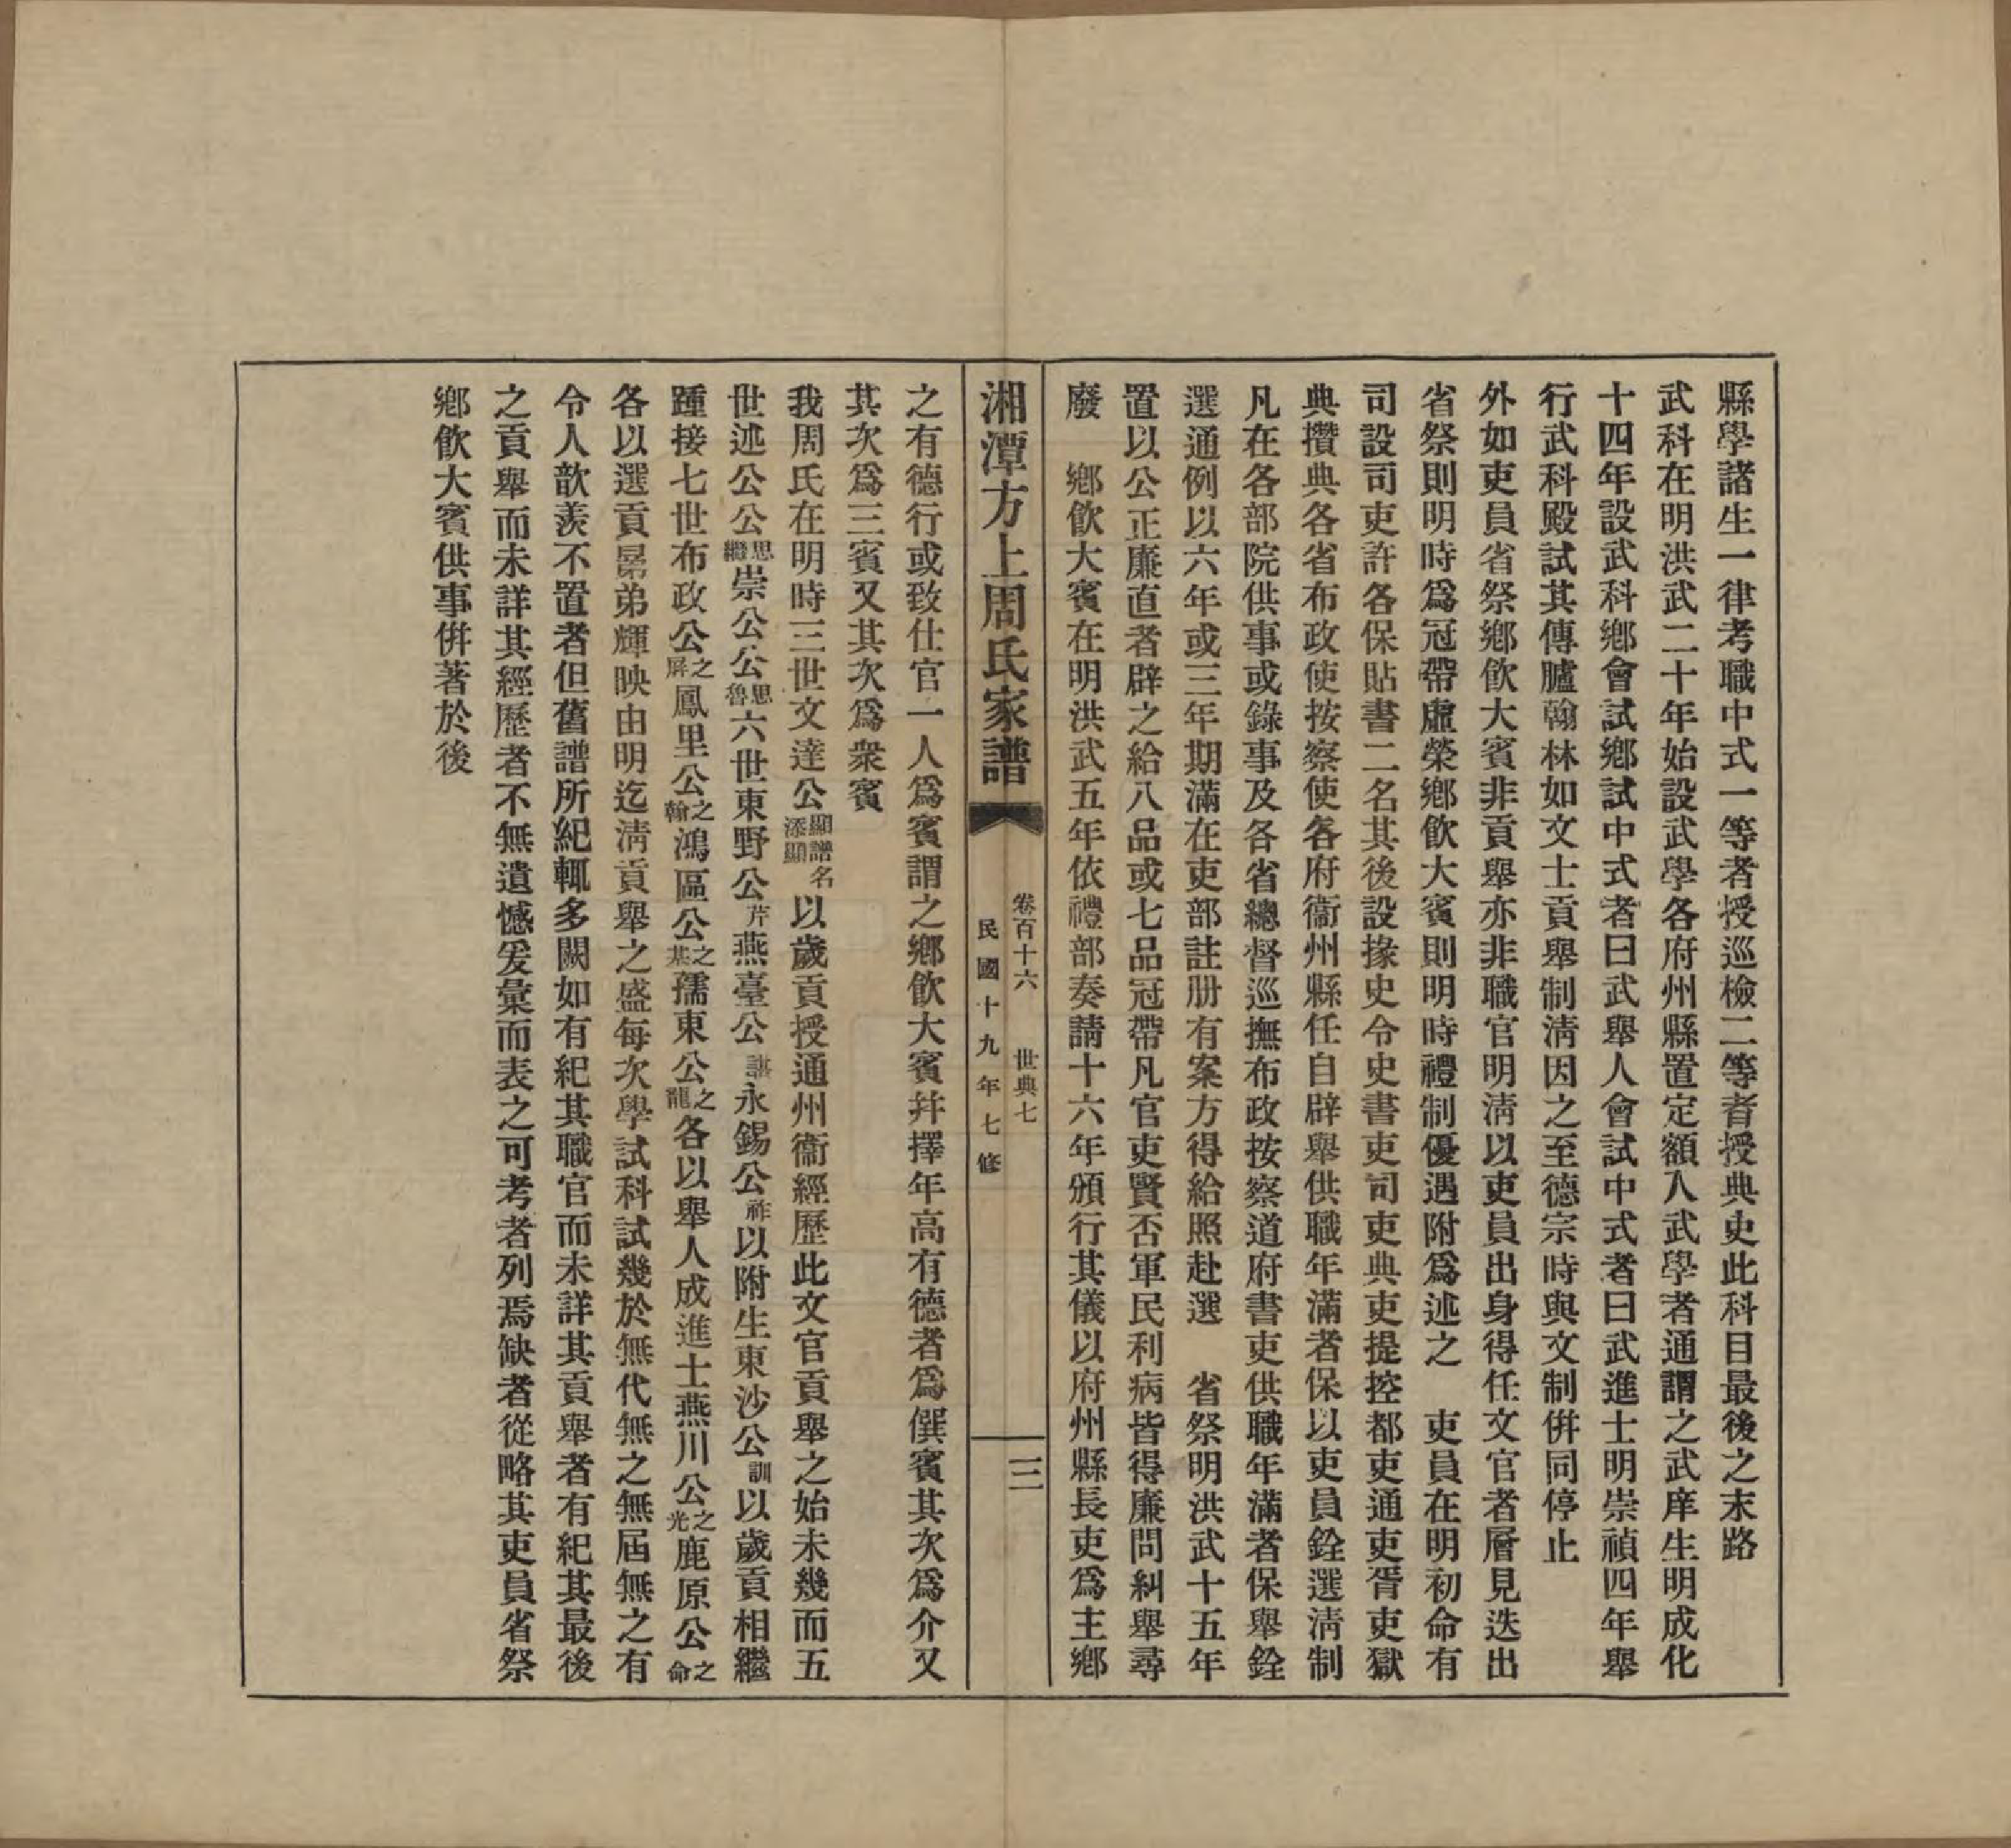 縣學諸生一律考職中式一等者授巡檢二等者授典史此科目最後之末路
武科在明洪武二十年始設武學各府州縣置定額入武學者通謂之武庠生明成化
十四年設武科鄕會試鄕試中式者曰武舉人會試中式者曰武進士明崇禎四年舉
行武科殿試其傳臚翰林如文士貢舉制淸因之至德宗時與文制倂同停止
外如吏員省祭鄕飮大賓非貢舉亦非職官明淸以吏員出身得任文官者層見迭出
省祭則明時爲冠帶虛榮鄕飮大賓則明時禮制優遇附爲述之　吏員在明初命有
司設司吏許各保貼書二名其後設掾史令史書吏司吏典吏提控都吏通吏胥吏獄
典攢典各省布政使按察使各府衞州縣任自辟舉供職年滿者保以吏員銓選淸制
凡在各部院供事或錄事及各省總督巡撫布政按察道府書吏供職年滿者保舉銓
選通例以六年或三年期滿在吏部註册有案方得給照赴選　省祭明洪武十五年
置以公正廉直者辟之給八品或七品冠帶凡官吏賢否軍民利病皆得廉問糾舉尋
廢　鄕飮大賓在明洪武五年依禮部奏請十六年頒行其儀以府州縣長吏爲主鄕
湘潭方上周氏家譜
卷百十六　世典七
民國十九年七修
三
之有德行或致仕官一人爲賓謂之鄕飮大賓幷擇年高有德者爲僎賓其次爲介又
其次爲三賓又其次爲衆賓
我周氏在明時三世文達公顯譜名添顯以歲貢授通州衞經歷此文官貢舉之始未幾而五
世述公公思繼崇公公思魯六世東野公芹燕臺公諶永錫公祚以附生東沙公訓以歲貢相繼
踵接七世布政公之屏鳳里公之翰鴻區公之基孺東公之龍各以舉人成進士燕川公之光鹿原公之命
各以選貢晜弟輝映由明迄淸貢舉之盛每次學試科試幾於無代無之無屆無之有
令人歆羨不置者但舊譜所紀輒多闕如有紀其職官而未詳其貢舉者有紀其最後
之貢舉而未詳其經歷者不無遺憾爰彙而表之可考者列焉缺者從略其吏員省祭
鄕飮大賓供事倂著於後